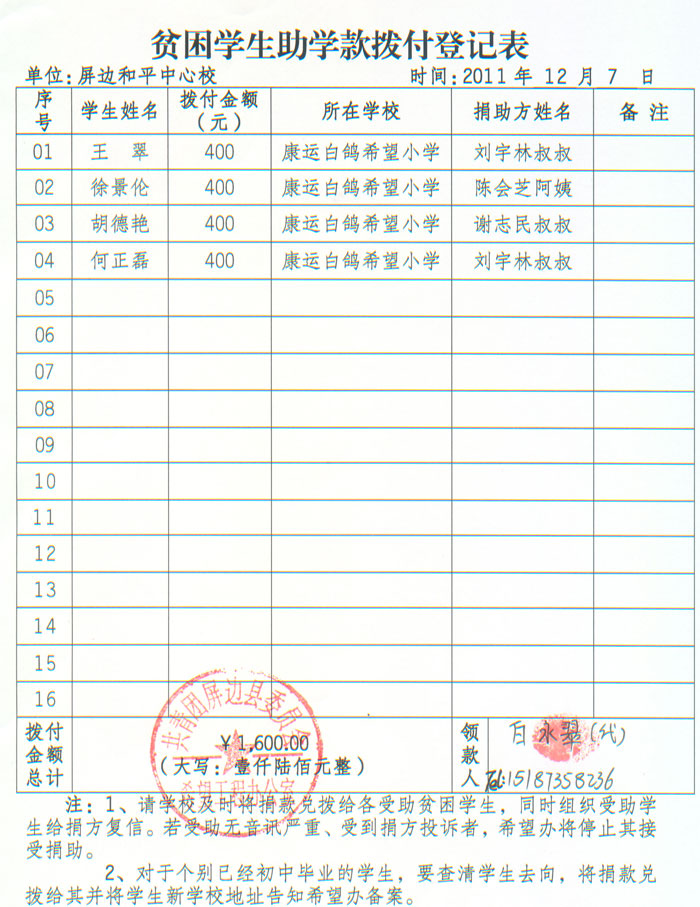 贫困学生助学款拨付登记表
单位:屏边和平中心校 时间:2011年 12 月 7 日
序号 学生姓名 拨付金额(元) 所在学校 捐助方姓名 备 注
01 王 翠 400 康运白鸽希望小学 刘宇林叔叔
02 徐景伦 400 康运白鸽希望小学 陈会芝阿姨
03 胡德艳 400 康运白鸽希望小学 谢志民叔叔
04 何正磊 400 康运白鸽希望小学 刘宇林叔叔
05
06
07
08
09
10
11
12
13
14
15
16
共青团屏边县委员会
希望工程办公室
拨付金额总计 ¥1,600.00 领款人 白永翠(代)
(大写:壹仟陆佰元整) Tel:15187358236
注:1、请学校及时将捐款兑拨给各受助贫困学生,同时组织受助学
生给捐方复信。若受助无音讯严重、受到捐方投诉者,希望办将停止其接
受捐助。
2、对于个别已经初中毕业的学生,要查清学生去向,将捐款兑
拨给其并将学生新学校地址告知希望办备案。